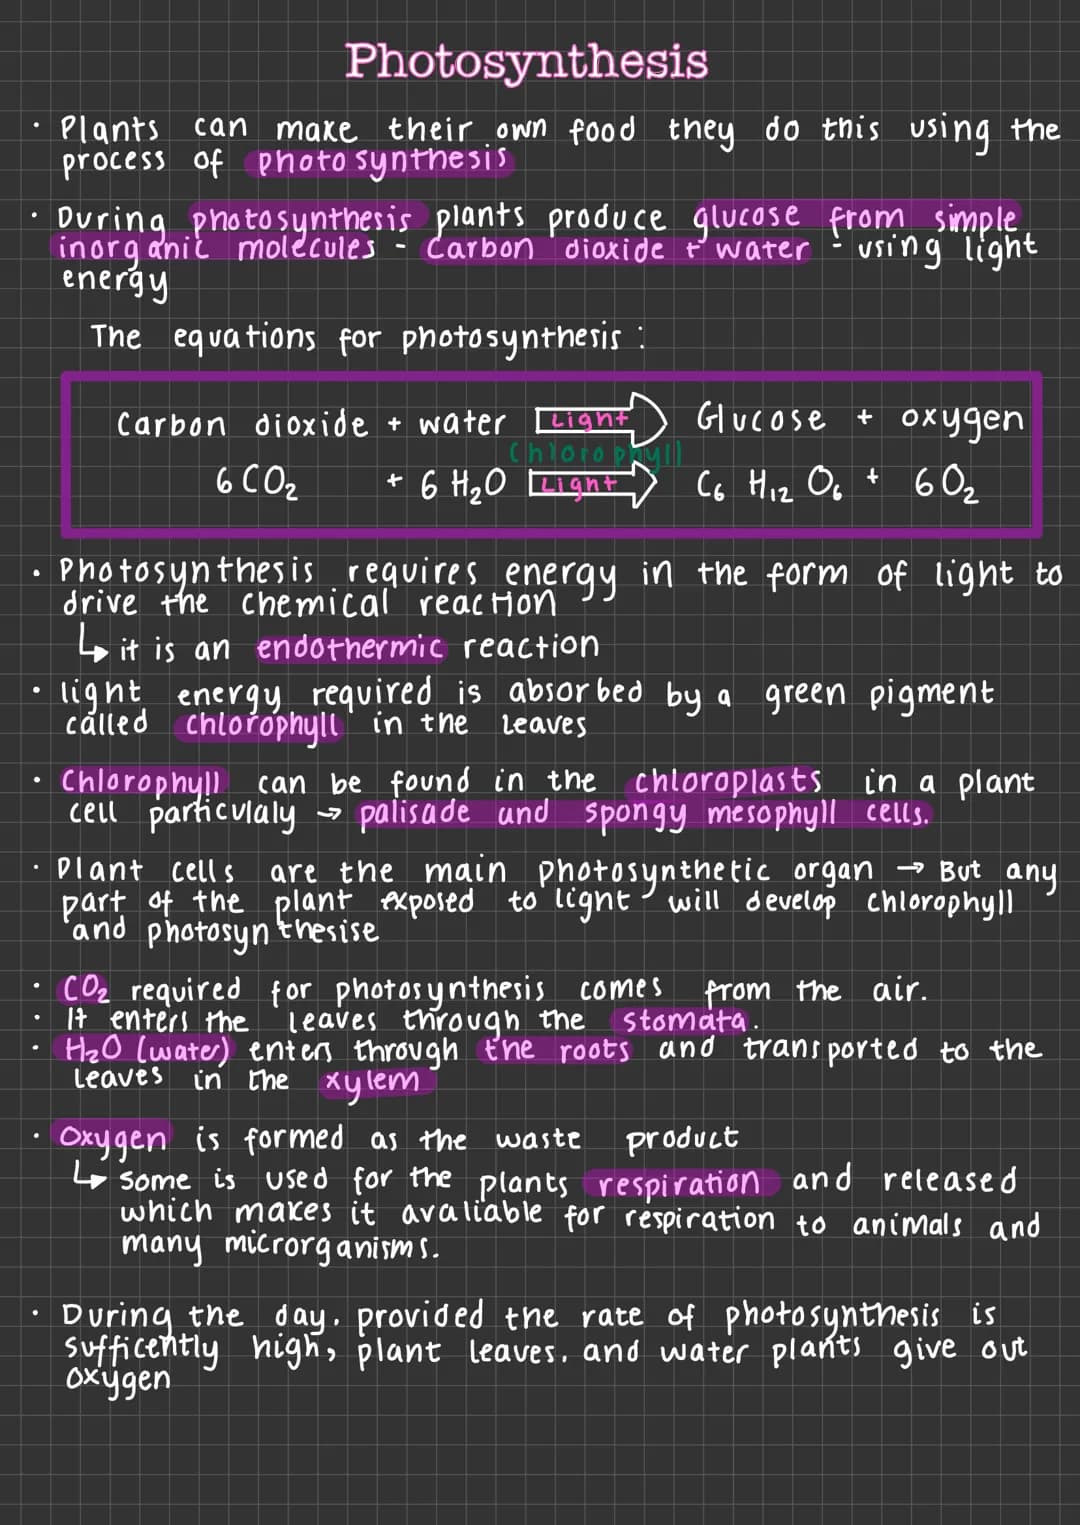 Photosynthesis
· Plants can make their own food they do this using the
process of photosynthesis
· During photosynthesis plants produce glucose from simple
inorganic molecules - Carbon dioxide + water - using light
energy
The equations for photosynthesis :
Carbon dioxide + water Light Glucose + oxygen
Chlorophyll
6 CO₂ + 6 H₂O Light C₆ H₁₂ O₆ + 6 O₂
· Photosynthesis requires energy in the form of light to
drive the chemical reaction
↳ it is an endothermic reaction
· light energy required is absorbed by a green pigment
called chlorophyll in the leaves
· Chlorophyll can be found in the chloroplasts in a plant
cell particulaly → palisade and spongy mesophyll cells.
· Plant cells are the main photosynthetic organ → But any
part of the plant exposed to light will develop chlorophyll
and photosynthesise
· CO₂ required for photosynthesis comes from the air.
· It enters the leaves through the stomata.
· H₂O (water) enters through the roots and transported to the
leaves in the xylem
· Oxygen is formed as the waste product
↳ Some is used for the plants respiration and released
which makes it avaliable for respiration to animals and
many microrganisms.
· During the day, provided the rate of photosynthesis is
sufficently high, plant leaves, and water plants give out
oxygen